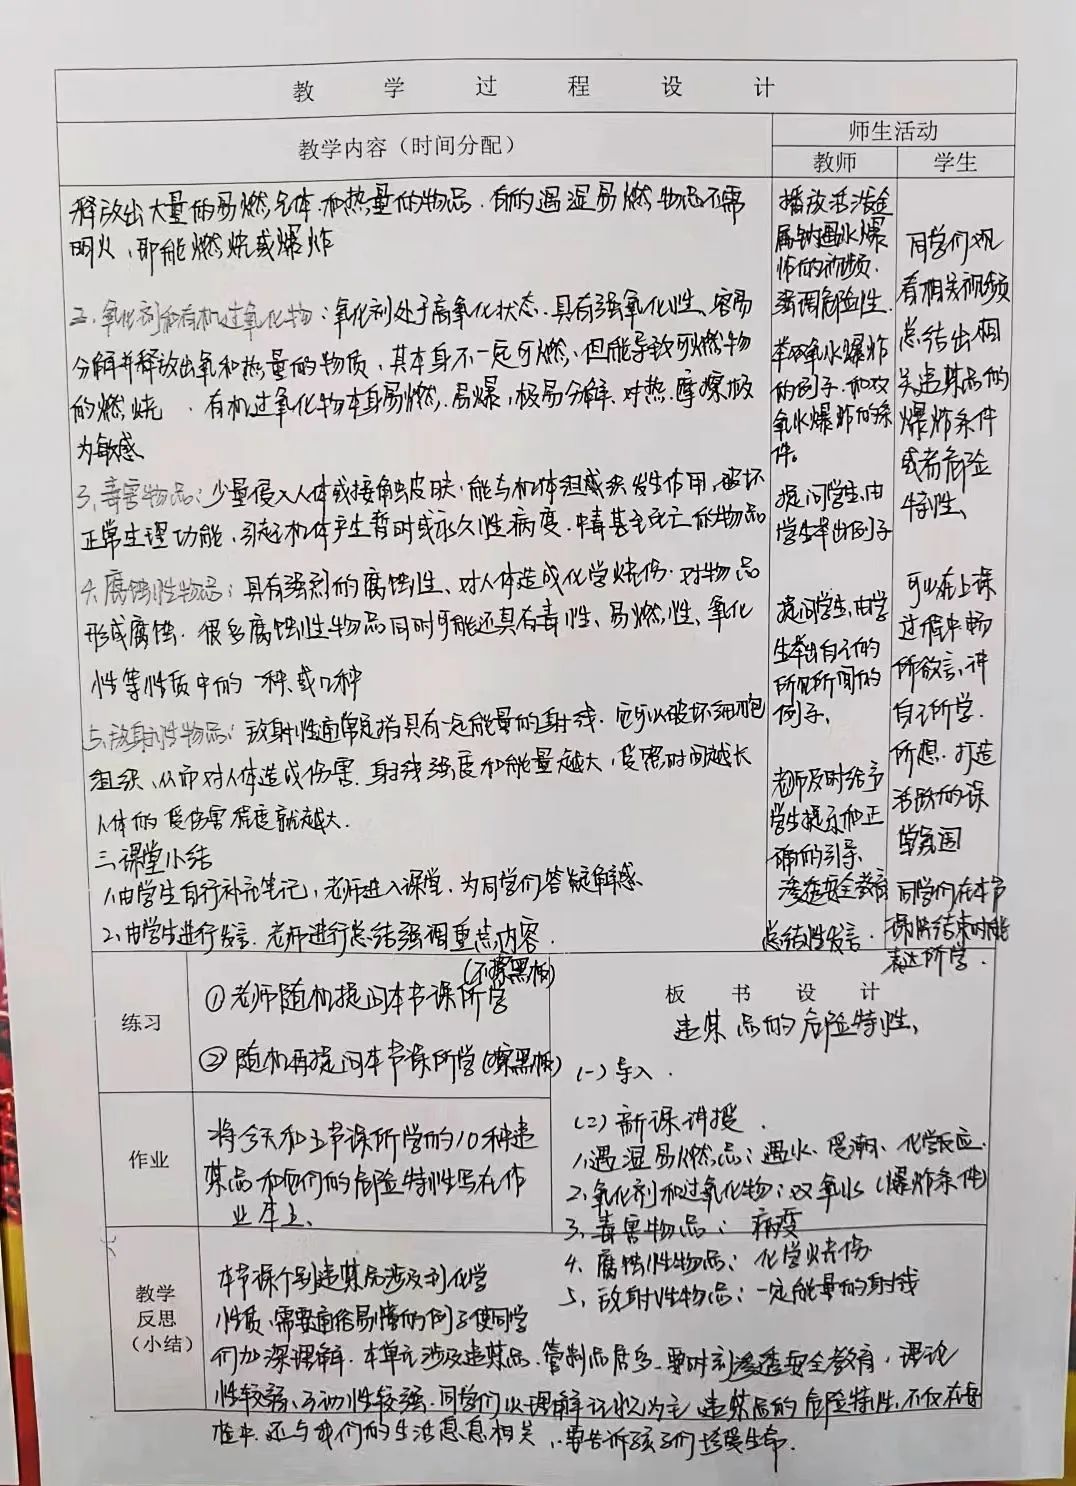 教学过程设计
教学内容（时间分配）
师生活动
教师
学生
释放出大量的易燃气体和热量的物品．有的遇湿易燃物品不需
明火、即能燃烧或爆炸
2、氧化剂和有机过氧化物：氧化剂处于高氧化状态．具有强氧化性、容易
分解并释放出氧和热量的物质，其本身不一定可燃、但能导致可燃物
的燃烧．有机过氧化物本身易燃、易爆，极易分解、对热、摩擦极
为敏感、
3、毒害物品：少量侵入人体或接触皮肤、能与机体组织发生作用，破坏
正常生理功能，引起机体产生暂时或永久性病变．中毒甚至死亡的物品
4、腐蚀性物品：具有强烈的腐蚀性、对人体造成化学烧伤．对物品
形成腐蚀．很多腐蚀性物品同时可能还具有毒性、易燃性、氧化
性等性质中的一种、或几种
5、放射性物品：放射性通常是指具有一定能量的射线．它可以破坏细胞
组织、从而对人体造成伤害．射线强度和能量越大，受照时间越长
人体的受伤害程度就越大．
三、课堂小结
1、由学生自行补充笔记，老师进入课堂．为同学们答疑解惑．
2、由学生进行发言．老师进行总结强调重点内容．
播放活泼金
属钠遇水爆
炸的视频．
强调危险性．
举双氧水爆炸
的例子．和双
氧水爆炸的条
件。
提问学生，由
学生举出例子
提问学生，由学
生举出自己的
所见所闻的
例子、
老师及时给予
学生提示和正
确的引导
渗透安全教育
总结性发言．
同学们观
看相关视频
总结出相
关违禁品的
爆炸条件
或者危险
特性、
可以在上课
过程中畅
所欲言，讲
自己所学．
所想．打造
活跃的课
堂氛围
同学们在本节
课所结束时能
表达所学．
练习
①老师随机提问本节课所学
（不擦黑板）
②随机再提问本节课所学（擦黑板）
作业
将今天和上节课所学的10种违
禁品和他们的危险特性写在作
业本上、
板书设计
违禁品的危险特性、
（一）导入．
（二）新课讲授．
1、遇湿易燃品：遇水、受潮、化学反应．
2、氧化剂和过氧化物：双氧水（爆炸条件）
3、毒害物品：病变
4、腐蚀性物品：化学烧伤
5、放射性物品：一定能量的射线
教学
反思
（小结）
本节课个别违禁品涉及到化学
性质、需要通俗易懂的例子使同学
们加深理解．本单元涉及违禁品、管制品居多．要时刻渗透安全教育，理论
性较强、互动性较强．同学们以理解记忆为主．违禁品的危险特性，不仅在安
检中．还与我们的生活息息相关，要告诉孩子们珍爱生命．